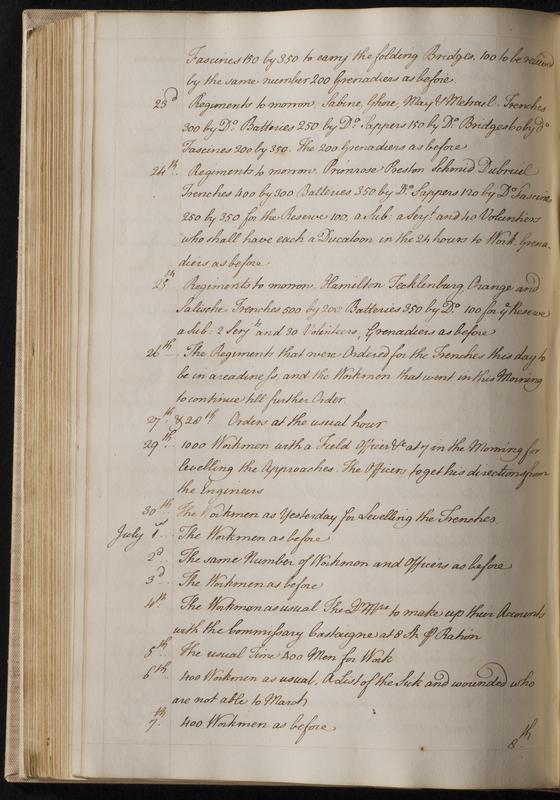 Fascines 150 by 350 to carry the folding Bridges. 100 to be relieved
by the same number 200 Grenadiers as before.
23d Regiments to morrow, Sabine, Ghore, May & Metrail. Trenches
300 by Do. Batteries 250 by Do. Sappers 150 by Do. Bridges 60 by Do
Fascines 200 by 350. The 200 Grenadiers as before
24th. Regiments to morrow. Primrose Preston Schmid Dubreiel
Trenches 400 by 300 Batteries 350 by Do. Sappers 120 by Do. Fascine
250 by 350 for the Reserve 100, a Sub: a Serjt. and 40 Voluntiers
who shall have each a Ducatoon in the 24 hours to Work. Grena-
diers as before
25th Regiments to morrow. Hamilton Tecklenburg Orange and
Salische Trenches 500 by 200 Batteries 350 by Do. 100 for ye Reserve
a Sub: 2 Serjts and 30 Volunteers, Grenadiers as before
26th.. The Regiments that were Ordered for the Trenches this day to
be in areadiness, and the Workmen that went in this Morning
to continue till further Order.
27th & 28th Orders at the usual hour
29th.. 1000 Workmen with a Field Officer &c at 7 in the Morning for
levelling the Approaches. The Officers to get his directions from
the Engineers
30th. The Workmen as Yesterday for Levelling the Trenches.
July 1st.. The Workmen as before
2d.. The same Number of Workmen and Officers as before
3d. The Workmen as before
4th. The Workmen as usual The Qr. Mrs to make up their Accounts
with the Commissary Castaigne at 8 St. Ration
5th. The usual Time 400 Men for Work
6th. 400 Workmen as usual, A List of the Sick and wounded who
are not able to March
7th. 400 Workmen as before
8th